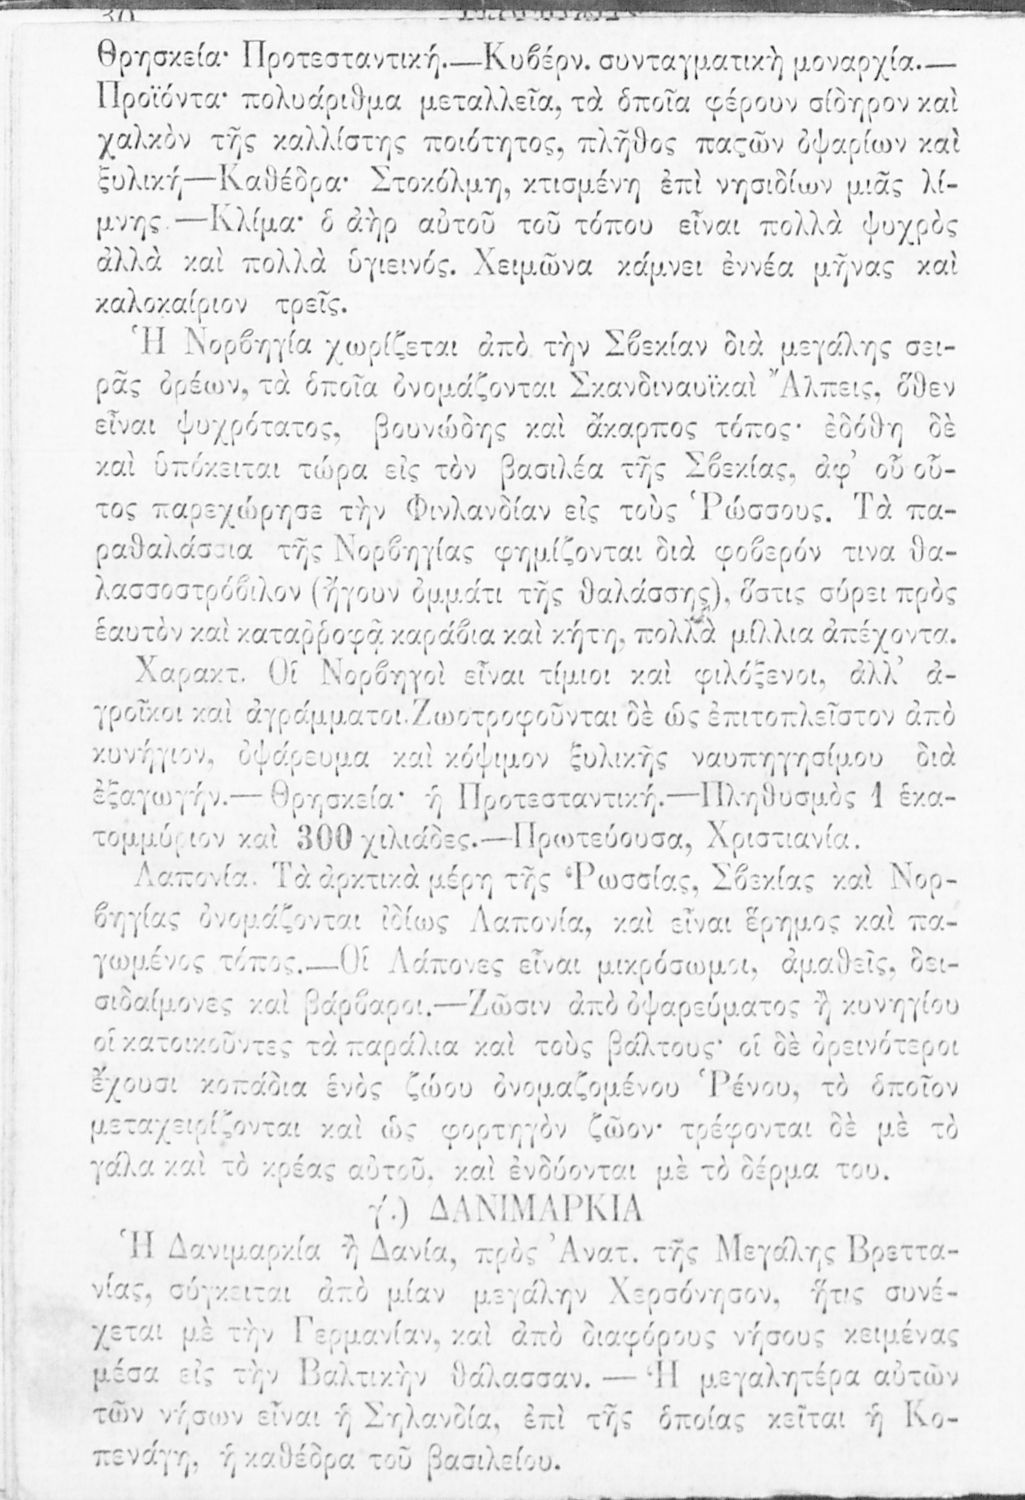 30
Θρησκεία· Προτεσταντική.—Κυβέρν. συνταγματικὴ μοναρχία.—
Προϊόντα· πολυάριθμα μεταλλεῖα, τὰ ὁποῖα φέρουν σίδηρον καὶ
χαλκὸν τῆς καλλίστης ποιότητος, πλῆθος παςῶν ὀψαρίων καὶ
ξυλική—Καθέδρα· Στοκόλμη, κτισμένη ἐπὶ νησιδίων μιᾶς λί-
μνης.—Κλίμα· ὁ ἀὴρ αὐτοῦ τοῦ τόπου εἶναι πολλὰ ψυχρὸς
ἀλλὰ καὶ πολλὰ ὑγιεινός. Χειμῶνα κάμνει ἐννέα μῆνας καὶ
καλοκαίριον τρεῖς.
Ἡ Νορβηγία χωρίζεται ἀπὸ τὴν Σβεκίαν διὰ μεγάλης σει-
ρᾶς ὀρέων, τὰ ὁποῖα ὀνομάζονται Σκανδιναυϊκαὶ Ἄλπεις, ὅθεν
εἶναι ψυχρότατος, βουνώδης καὶ ἄκαρπος τόπος· ἐδόθη δὲ
καὶ ὑπόκειται τώρα εἰς τὸν βασιλέα τῆς Σβεκίας, ἀφ' οὗ οὗ-
τος παρεχώρησε τὴν Φινλανδίαν εἰς τοὺς Ῥώσσους. Τὰ πα-
ραθαλάσσια τῆς Νορβηγίας φημίζονται διὰ φοβερόν τινα θα-
λασσοστρόβιλον (ἤγουν ὀμμάτι τῆς θαλάσσης), ὅστις σύρει πρὸς
ἑαυτὸν καὶ καταῤῥοφᾷ καράβια καὶ κήτη, πολλὰ μίλλια ἀπέχοντα.
Χαρακτ. Οἱ Νορβηγοὶ εἶναι τίμιοι καὶ φιλόξενοι, ἀλλ' ἀ-
γροῖκοι καὶ ἀγράμματοι. Ζωοτροφοῦνται δὲ ὡς ἐπιτοπλεῖστον ἀπὸ
κυνήγιον, ὀψάρευμα καὶ κόψιμον ξυλικῆς ναυπηγησίμου διὰ
ἐξαγωγήν.—Θρησκεία· ἡ Προτεσταντική.—Πληθυσμὸς 1 ἑκα-
τομμύριον καὶ 300 χιλιάδες.—Πρωτεύουσα, Χριστιανία.
Λαπονία. Τὰ ἀρκτικὰ μέρη τῆς Ῥωσσίας, Σβεκίας καὶ Νορ-
βηγίας ὀνομάζονται ἰδίως Λαπονία, καὶ εἶναι ἔρημος καὶ πα-
γωμένος τόπος.—Οἱ Λάπονες εἶναι μικρόσωμοι, ἀμαθεῖς, δει-
σιδαίμονες καὶ βάρβαροι.—Ζῶσιν ἀπὸ ὀψαρεύματος ἢ κυνηγίου
οἱ κατοικοῦντες τὰ παράλια καὶ τοὺς βάλτους· οἱ δὲ ὀρεινότεροι
ἔχουσι κοπάδια ἑνὸς ζώου ὀνομαζομένου Ῥένου, τὸ ὁποῖον
μεταχειρίζονται καὶ ὡς φορτηγὸν ζῶον· τρέφονται δὲ μὲ τὸ
γάλα καὶ τὸ κρέας αὐτοῦ, καὶ ἐνδύονται μὲ τὸ δέρμα του.
γ'.) ΔΑΝΙΜΑΡΚΙΑ
Ἡ Δανιμαρκία ἢ Δανία, πρὸς Ἀνατ. τῆς Μεγάλης Βρεττα-
νίας, σύγκειται ἀπὸ μίαν μεγάλην Χερσόνησον, ἥτις συνέ-
χεται μὲ τὴν Γερμανίαν, καὶ ἀπὸ διαφόρους νήσους κειμένας
μέσα εἰς τὴν Βαλτικὴν θάλασσαν. — Ἡ μεγαλητέρα αὐτῶν
τῶν νήσων εἶναι ἡ Σηλανδία, ἐπὶ τῆς ὁποίας κεῖται ἡ Κο-
πενάγη, ἡ καθέδρα τοῦ βασιλείου.